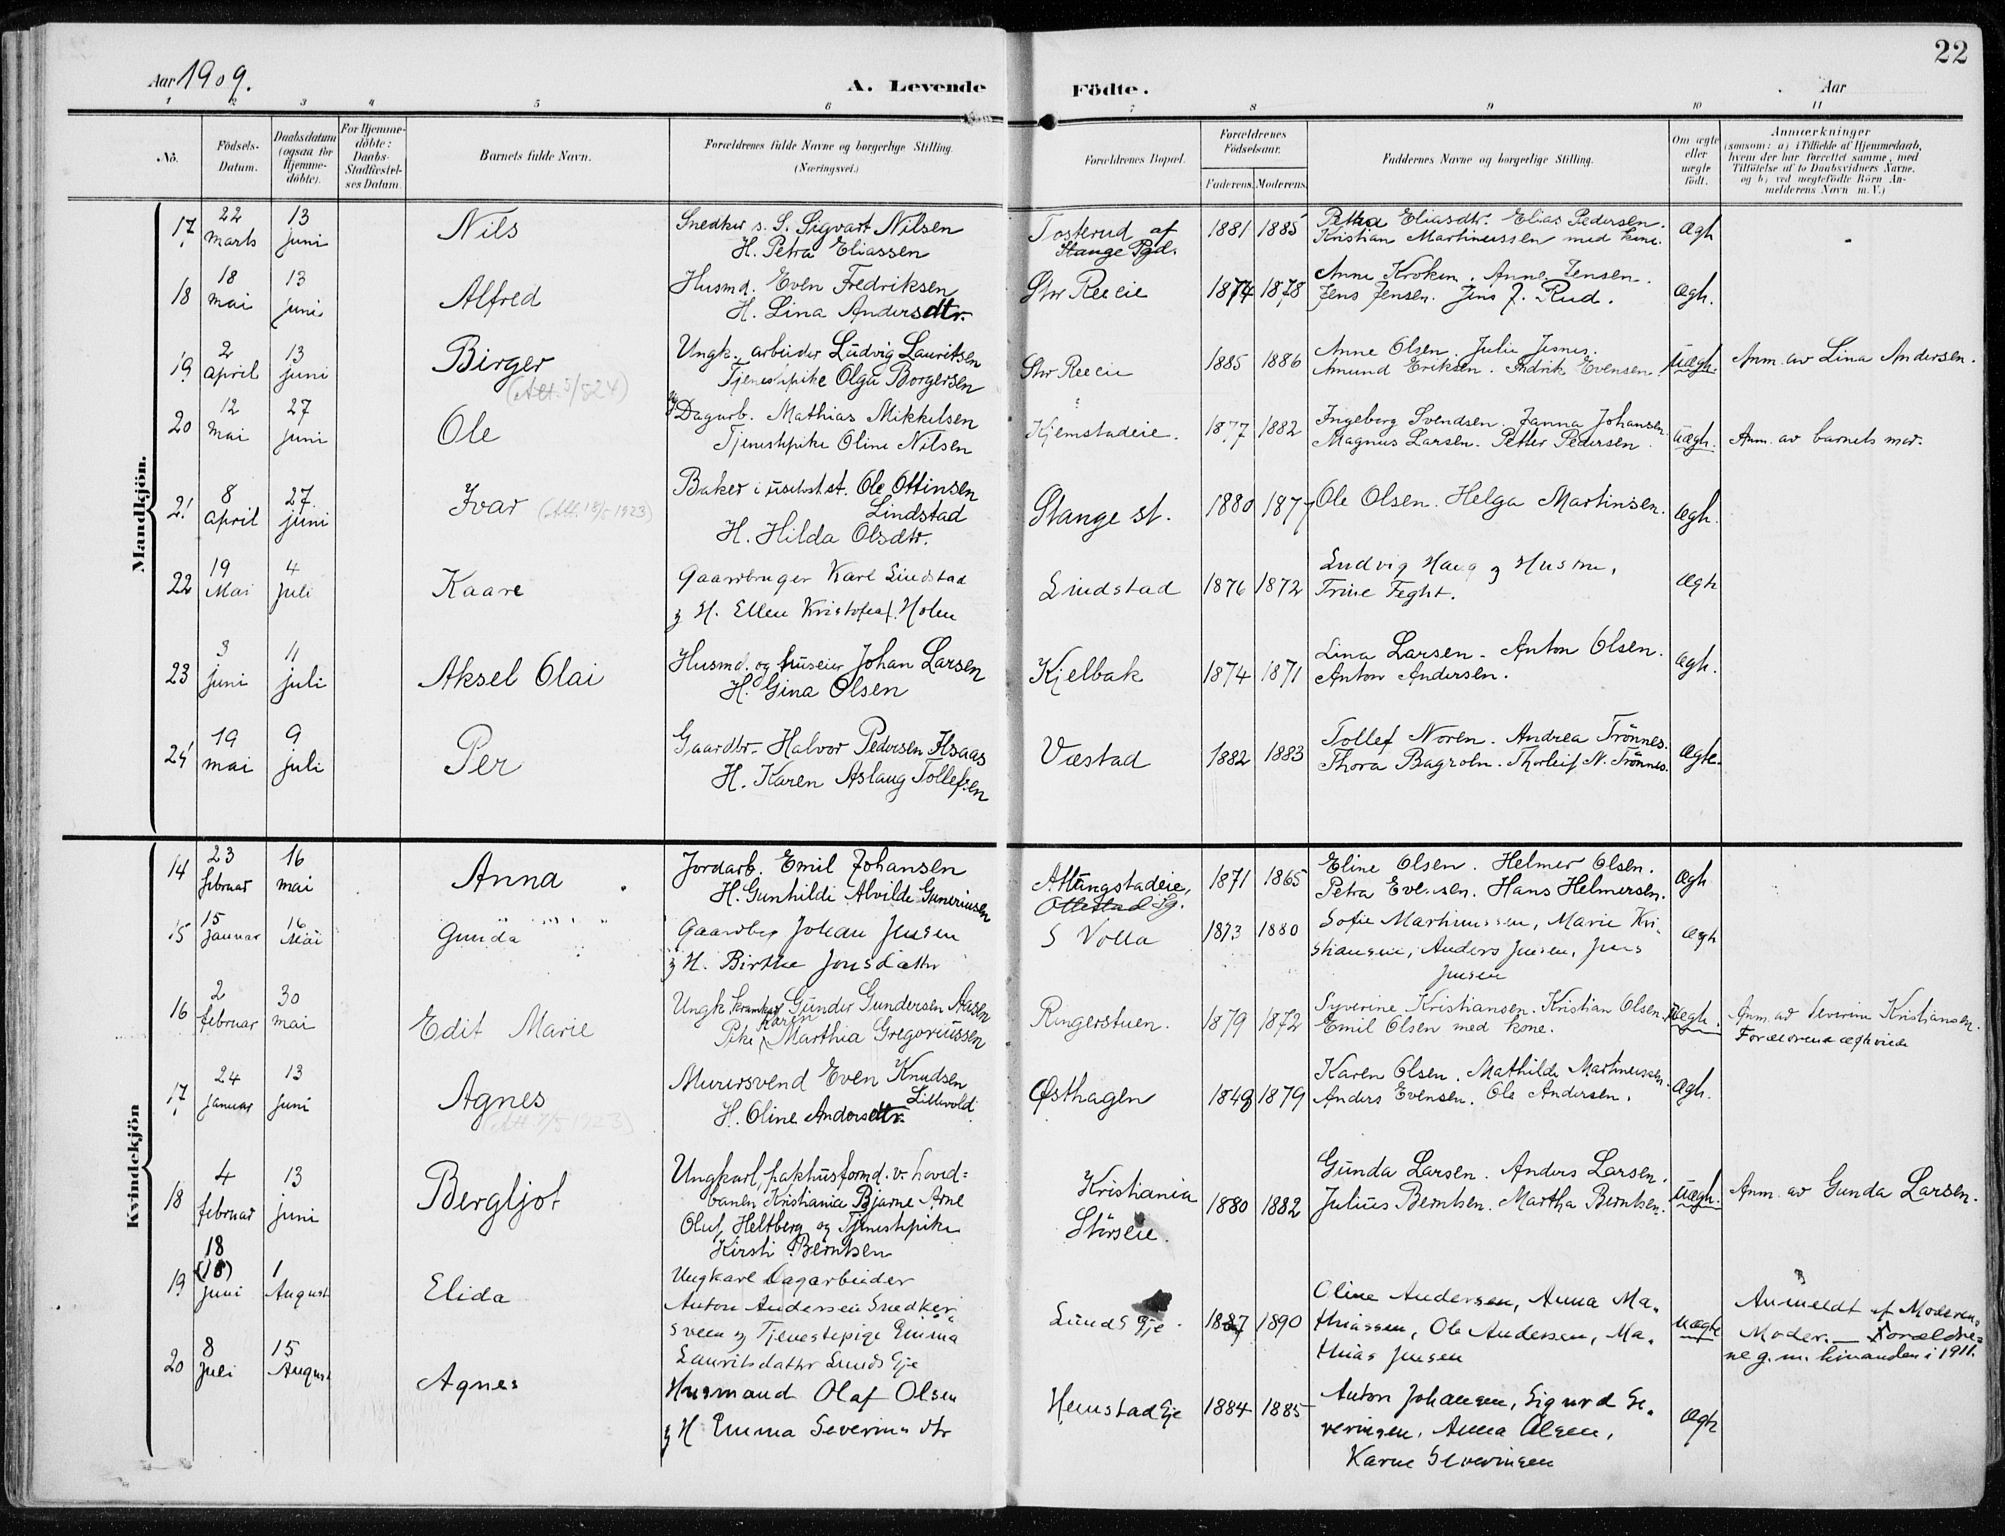 22
Aar 1909.
A. Levende
Födte.
Aar
1 2 3 4 5 6 7 8 9 10 11
No.
Födsels-
Datum.
Daabsdatum
(ogsaa for
Hjemme-
döbte).
For Hjemme-
döbte:
Daabs-
Stadfæstel-
ses Datum.
Barnets fulde Navn.
Forældrenes fulde Navne og borgerlige Stilling.
(Næringsvei.)
Forældrenes Bopæl.
Forældrenes
Födselsaar.
Faderens. Moderens.
Faddernes Navne og borgerlige Stilling.
Om ægte
eller
uægte
födt.
Anmærkninger
(saasom: a) i Tilfælde af Hjemmedaab,
hvem der har forrettet samme, med
Tilföielse af to Daabsvidners Navne,
og b) ved uægtefödte Börn An-
melderens Navn m. V.)
Mandkjön.
17. 22 marts 13 juni Nils
Snedker s. S. Sigvart Nilsen
H. Petra Eliassen
Tosterud af
Stange Pgd.
1881 1885
Petra Eliasdtr. Elias Pedersen.
Kristian Martinussen med kone.
Ægh
18 18 mai 13 juni Alfred
Husmd. Even Fredriksen
H. Lina Andersdtr.
Str Ree eie
1874 1878
Anne Kroken. Anne Jensen.
Jens Jensen. Jens J. Rud.
Ægh.
19 2 april 13 juni Birger
Ungk. arbeider Ludvig Lauritsen
Tjenestpike Olga Borgersen
Str Ree eie
1885 1886
Anne Olsen. Julie Jesnes.
Amund Eriksen. Fredrik Evensen.
Uægh.
Anm. av Lina Andersen.
20 12 mai 27 juni Ole
Dagarb. Mathias Mikkelsen
Tjenestpike Oline Nilsen
Kjemstadeie.
1877 1882
Ingeborg Svendsen. Janna Johansen.
Magnus Larsen. Petter Pedersen
Uægh.
Anm. av barnets mor.
21 8 april 27 juni Ivar
Baker i Ole Ottinsen
Lindstad
H. Hilda Olsdtr.
Stange st.
1880 1877
Ole Olsen. Helga Martinsen.
Ægh.
22 19 Mai 4 Juli Kaare
Gaardbruger Karl Lindstad
g H. Ellen Kristofersd. Holen
Lindstad
1876 1872
Ludvig Haug g Hustru,
Trine Feght.
Ægh
23 3 juni 11 juli Aksel Olai
Husmd. og huseier Johan Larsen
H. Gina Olsen
Kjelbak
1874 1871
Lina Larsen. Anton Olsen.
Anton Andersen.
Ægh.
24 19 mai 9 juli Per
Gaardbr. Halvor Pedersen Hsaas
H. Karen Aslaug Tollefsen
Væstad
1882 1883
Tollef Noren. Andrea Trönnes.
Thora Bagroln. Thorleif N. Trönnes.
Ægte.
Kvindekjön
14 23 februar 16 mai Anna
Jordarb. Emil Johansen
H. Gunhilde Alvilde Gunerinsen
Attungstadeie,
Ottestad Sg.
1871 1865
Eline Olsen. Helmer Olsen.
Petra Evensen. Hans Helmersen.
Ægh
15 15 Januar 16 Mai Gunda
Gaardbr Johan Jensen
g H. Birthe Jonsdatter
S Volla
1873 1880
Sofie Martinussen, Marie Kri-
stiansen, Anders Jensen, Jens
Jensen
Ægh
16 2 februar 30 mai Edit Marie
Ungk. Gunder Gundersen Aasen
Pike Karen Marthia Gregoriussen
Ringerstuen.
1879 1872
Syverine Kristiansen. Kristian Olsen.
Emil Olsen med kone.
Uægh.
Anm. av Severine Kristiansen.
17. 24 januar 13 juni Agnes
Murersvend Even Knudsen
Lillevold
H. Oline Andersdtr.
Østhagen
1848 1879
Karen Olsen. Mathilde Martinussen.
Anders Evensen. Ole Andersen.
Ægh.
18 4 februar 13 juni Bergljot
Ungkarl, pakhusformd. v. hoved=
banen Kristiania Bjarne Arne
Oluf Heltberg og Tjenestpike
Kirsti Berntsen
Kristiania
Störseie.
1880 1882
Gunda Larsen. Anders Larsen.
Julius Berntsen. Martha Berntsen.
Uægh.
Anm. av Gunda Larsen.
19 18 (18) Juni 1 August Elida
Ungkarl Dagarbeider
Anton Andersen Snedker
sveen g Tjenestepige Emma
Lauritsdatter Lunds Eje
Lunds Eje.
1887 1890
Oline Andersen, Anna Ma-
thiassen, Ole Andersen, Ma-
thias Jensen
Uægte
Anmeldt af Moderens
Moder. — Forældre=
ne g. m. hinanden i 1911.
20 8 Juli 15 August Agnes
Husmand Olaf Olsen
g H Emma Severinsdtr
Hemstad Eje
1884 1885
Anton Johansen, Sigurd Se-
verinsen, Anna Olsen,
Karne Severinsen
Ægh